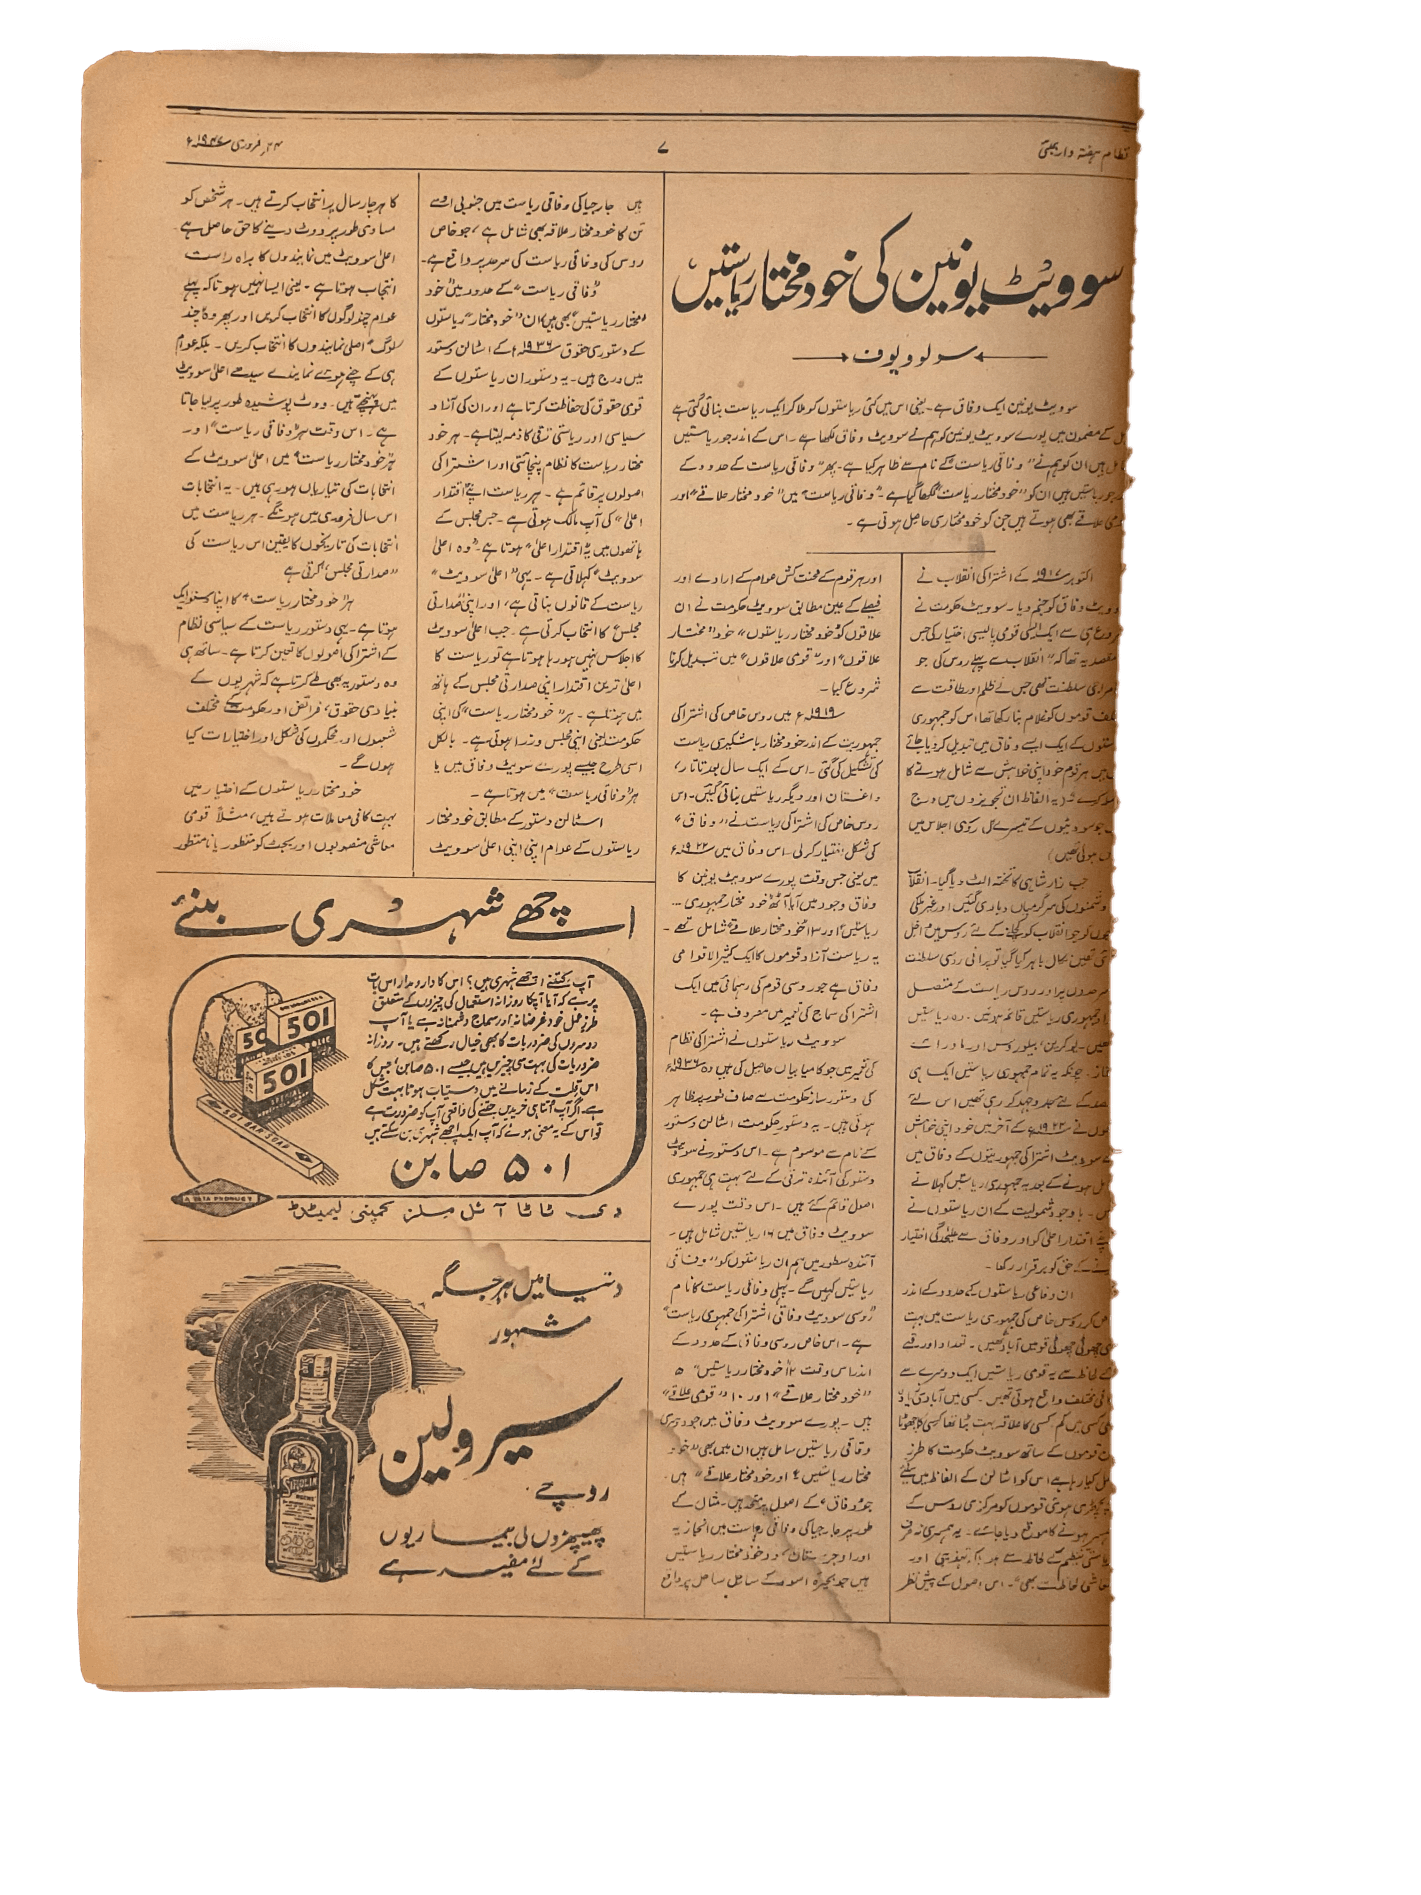 نظام ہفتہ وار بمبئی
۷
۲۳ر فروری ۱۹۴۷ء
سوویٹ یونین کی خود مختار ریاستیں
سولوویوف
سوویٹ یونین ایک وفاق ہے۔ یعنی اس میں کئی ریاستوں کو ملا کر ایک ریاست بنائی گئی ہے
کے مضمون میں پورے سوویٹ یونین کو ہم نے سوویٹ وفاق لکھا ہے۔ اس کے اندر جو ریاستیں
ہیں ان کو ہم نے "وفاقی ریاست" کے نام سے ظاہر کیا ہے۔ پھر "وفاقی ریاست کے حدود کے
جو ریاستیں ہیں ان کو "خود مختار ریاست" لکھا گیا ہے۔ "وفاقی ریاست" میں "خود مختار علاقے" اور
علاقے بھی ہوتے ہیں جن کو خود مختاری حاصل ہوتی ہے۔
اکتوبر ۱۹۱۷ء کے اشتراکی انقلاب نے
وفاق کو جنم دیا۔ سوویٹ حکومت نے
ہی سے ایک ایسی قومی پالیسی اختیار کی جس
مقصد یہ تھا کہ "انقلاب سے پہلے روس کی جو
سلطنت تھی جس نے ظلم اور طاقت سے
قوموں کو غلام بنا رکھا تھا اس کو جمہوری
کے ایک ایسے وفاق میں تبدیل کر دیا جائے
میں ہر قوم خود اپنی خواہش سے شامل ہونے کا
کرے" (یہ الفاظ ان تجویزوں میں درج
جو سوویٹوں کے تیسرے کل روسی اجلاس میں
ہوئی تھیں)
جب زار شاہی کا تختہ الٹ دیا گیا۔ انقلاب
دشمنوں کی سرگرمیاں دبا دی گئیں اور غیر ملکی
کو جو انقلاب کو کچلنے کے لئے روس میں داخل
تھیں نکال باہر کیا گیا تو پرانی روسی سلطنت
سرحدوں پر اور روسی ریاست کے متصل
جمہوری ریاستیں قائم ہوئیں۔ وہ ریاستیں
تھیں۔ یوکرین، بیلوروس اور ماورائے
چونکہ یہ تمام جمہوری ریاستیں ایک ہی
کے لئے جدوجہد کر رہی تھیں اس لئے
نے ۱۹۲۲ء کے آخر میں خود اپنی خواہش
سوویٹ اشتراکی جمہوریتوں کے وفاق میں
ہونے کے بعد یہ جمہوری ریاستیں کہلانے
باوجود شمولیت کے ان ریاستوں نے
اقتدار اعلیٰ کو اور وفاق سے علیحدگی اختیار
کے حق کو برقرار رکھا۔
ان وفاقی ریاستوں کے حدود کے اندر
کر روس خاص کی جمہوری ریاست میں بہت
چھوٹی چھوٹی قومیں آباد تھیں۔ تعداد اور رقبے
لحاظ سے یہ قومی ریاستیں ایک دوسرے سے
مختلف واقع ہوئی تھیں۔ کسی میں آبادی زیادہ
کسی میں کم، کسی کا علاقہ بہت بڑا تھا کسی کا چھوٹا
قوموں کے ساتھ سوویٹ حکومت کا طرز
رہا ہے اس کو اسٹالن کے الفاظ میں سنئے
ہوئی قوموں کو مرکزی روس کے
ہونے کا موقع دیا جائے۔ یہ ہمسری نہ صرف
تنظیم کے لحاظ سے ہو بلکہ تہذیبی اور
لحاظ سے بھی"۔ اس اصول کے پیش نظر
اور ہر قوم کے محنت کش عوام کے ارادے اور
فیصلے کے عین مطابق سوویٹ حکومت نے ان
علاقوں کو "خود مختار ریاستوں" خود "مختار
علاقوں" اور "قومی علاقوں" میں تبدیل کرنا
شروع کیا۔
۱۹۱۹ء میں روس خاص کی اشتراکی
جمہوریت کے اندر خود مختار باشکیری ریاست
کی تشکیل کی گئی۔ اس کے ایک سال بعد تاتار،
داغستان اور دیگر ریاستیں بنائی گئیں۔ اس
روس خاص کی اشتراکی ریاست نے "وفاق"
کی شکل اختیار کر لی۔ اس وفاق میں ۱۹۲۲ء
میں یعنی جس وقت پورے سوویٹ یونین کا
وفاق وجود میں آیا آٹھ خود مختار جمہوری
ریاستیں اور ۱۳ خود مختار علاقے شامل تھے۔
یہ ریاست آزاد قوموں کا ایک کثیرالاقوامی
وفاق ہے جو روسی قوم کی رہنمائی میں ایک
اشتراکی سماج کی تعمیر میں مصروف ہے۔
سوویٹ ریاستوں نے اشتراکی نظام
کی تعمیر میں جو کامیابیاں حاصل کی ہیں وہ ۱۹۳۶ء
کی دستور ساز حکومت سے صاف طور پر ظاہر
ہوتی ہیں۔ یہ دستور حکومت اسٹالن دستور
کے نام سے موسوم ہے۔ اس دستور نے سوویٹ
دستور کی آئندہ ترقی کے لئے بہت ہی جمہوری
اصول قائم کئے ہیں۔ اس وقت پورے
سوویٹ وفاق میں ۱۶ ریاستیں شامل ہیں۔
آئندہ سطور میں ہم ان ریاستوں کو "وفاقی
ریاستیں کہیں گے۔ پہلی وفاقی ریاست کا نام
"روسی سوویٹ وفاقی اشتراکی جمہوری ریاست"
ہے۔ اس خاص روسی وفاق کے حدود کے
اندر اس وقت ۱۲ "خود مختار ریاستیں" ۵
"خود مختار علاقے" اور ۱۰ "قومی علاقے"
ہیں۔ پورے سوویٹ وفاق میں جو دوسری
وفاقی ریاستیں شامل ہیں ان میں بھی "خود
مختار ریاستیں" اور خود مختار علاقے" ہیں۔
جو "وفاق" کے اصول پر متحد ہیں۔ مثال کے
طور پر جارجیا کی وفاقی ریاست میں ابخازیہ
اور اوجرستان دو خود مختار ریاستیں
ہیں جو بحیرہ اسود کے ساحل ساحل پر واقع
ہیں جارجیا کی وفاقی ریاست میں جنوبی اوسے
تن کا خود مختار علاقہ بھی شامل ہے، جو خاص
روس کی وفاقی ریاست کی سرحد پر واقع ہے۔
"وفاقی ریاست" کے حدود میں "خود
مختار ریاستیں" بھی ہیں، ان "خود مختار" ریاستوں
کے دستوری حقوق ۱۹۳۶ء کے اسٹالن دستور
میں درج ہیں۔ یہ دستور ان ریاستوں کے
قومی حقوق کی حفاظت کرتا ہے اور ان کی آزاد
سیاسی اور ریاستی ترقی کا ذمہ لیتا ہے۔ ہر خود
مختار ریاست کا نظام پنچائتی اور اشتراکی
اصولوں پر قائم ہے۔ ہر ریاست اپنے "اقتدار
اعلیٰ" کی آپ مالک ہوتی ہے۔ جس مجلس کے
ہاتھوں میں یہ "اقتدار اعلیٰ" ہوتا ہے۔ وہ اعلیٰ
سوویٹ کہلاتی ہے۔ یہی "اعلیٰ سوویٹ"
ریاست کے قانون بناتی ہے، اور اپنی "صدارتی
مجلس" کا انتخاب کرتی ہے۔ جب اعلیٰ سوویٹ
کا اجلاس نہیں ہو رہا ہوتا ہے تو ریاست کا
اعلیٰ ترین اقتدار اپنی صدارتی مجلس کے ہاتھ
میں ہوتا ہے۔ ہر "خود مختار ریاست" کی اپنی
حکومت یعنی اپنی مجلس وزرا ہوتی ہے۔ بالکل
اسی طرح جیسے پورے سویٹ وفاق میں یا
ہر "وفاقی ریاست" میں ہوتا ہے۔
اسٹالن دستور کے مطابق خود مختار
ریاستوں کے عوام اپنی اپنی اعلیٰ سوویٹ
کا ہر چار سال پر انتخاب کرتے ہیں۔ ہر شخص کو
مساوی طور پر ووٹ دینے کا حق حاصل ہے۔
اعلیٰ سوویٹ میں نمایندوں کا براہ راست
انتخاب ہوتا ہے۔ یعنی ایسا نہیں ہوتا کہ پہلے
عوام چند لوگوں کا انتخاب کریں اور پھر وہ چند
لوگ اصلی نمایندوں کا انتخاب کریں۔ بلکہ عوام
ہی کے چنے ہوئے نمایندے سیدھے اعلیٰ سوویٹ
میں پہنچتے ہیں۔ ووٹ پوشیدہ طور پر لیا جاتا
ہے۔ اس وقت ہر "وفاقی ریاست" اور
ہر "خود مختار ریاست" میں اعلیٰ سوویٹ کے
انتخابات کی تیاریاں ہو رہی ہیں۔ یہ انتخابات
اس سال فروری میں ہونگے۔ ہر ریاست میں
انتخابات کی تاریخوں کا یقین اس ریاست کی
"صدارتی مجلس" کرتی ہے
ہر "خود مختار ریاست" کا اپنا دستور ایک
ہوتا ہے۔ یہی دستور ریاست کے سیاسی نظام
کے اشتراکی اصولوں کا تعین کرتا ہے۔ ساتھ ہی
وہ دستور یہ بھی طے کرتا ہے کہ شہریوں کے
بنیادی حقوق، فرائض اور حکومت کے مختلف
شعبوں اور محکموں کی شکل اور اختیارات کیا
ہوں گے۔
خود مختار ریاستوں کے اختیار میں
بہت کافی معاملات ہوتے ہیں، مثلاً قومی
معاشی منصوبوں اور بجٹ کو منظور یا نامنظور
اچھے شہری بنئے
آپ کتنے اچھے شہری ہیں؟ اس کا دارومدار اس بات
پر ہے کہ آیا آپکا روزانہ استعمال کی چیزوں کے متعلق
طرز عمل خود غرضانہ اور سماج دشمنانہ ہے یا آپ
دوسروں کی ضروریات کا بھی خیال رکھتے ہیں۔ روزانہ
ضروریات کی بہت سی چیزیں ہیں جیسے ۵۰۱ صابن، جس کا
اس قلت کے زمانے میں دستیاب ہونا بہت مشکل
ہے۔ اگر آپ اتنا ہی خریدیں جتنے کی واقعی آپ کو ضرورت ہے
تو اس کے یہ معنی ہونگے کہ آپ ایک اچھے شہری بن سکتے ہیں
501
501
501
SPECIAL
501 BAR SOAP
۵۰۱ صابن
A TATA PRODUCT
دی ٹاٹا آئل ملز کمپنی لیمیٹڈ
دنیا میں ہر جگہ
مشہور
سیرولین
روچے
SIROLIN
پھیپھڑوں کی بیماریوں
کے لئے مفید ہے